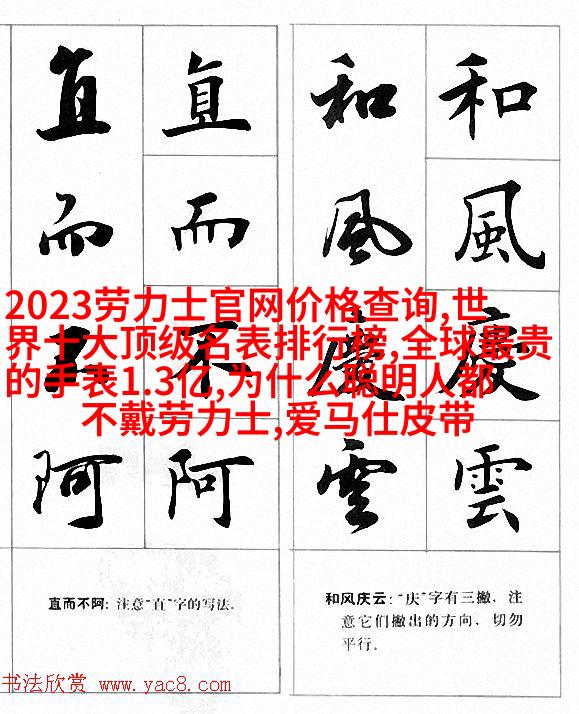 和 和
風 風
慶 慶
雲 雲
和风庆云：“庆”字有三撇，注
意它们撇出的方向，切勿
平行。
直 直
而 而
不 不
阿 阿
直而不阿：注意“直”字的写法。
2023劳力士官网价格查询,世
界十大顶级名表排行榜,全球最贵
的手表1.3亿,为什么聪明人都
不戴劳力士,爱马仕皮带
书法欣赏 www.yac8.com